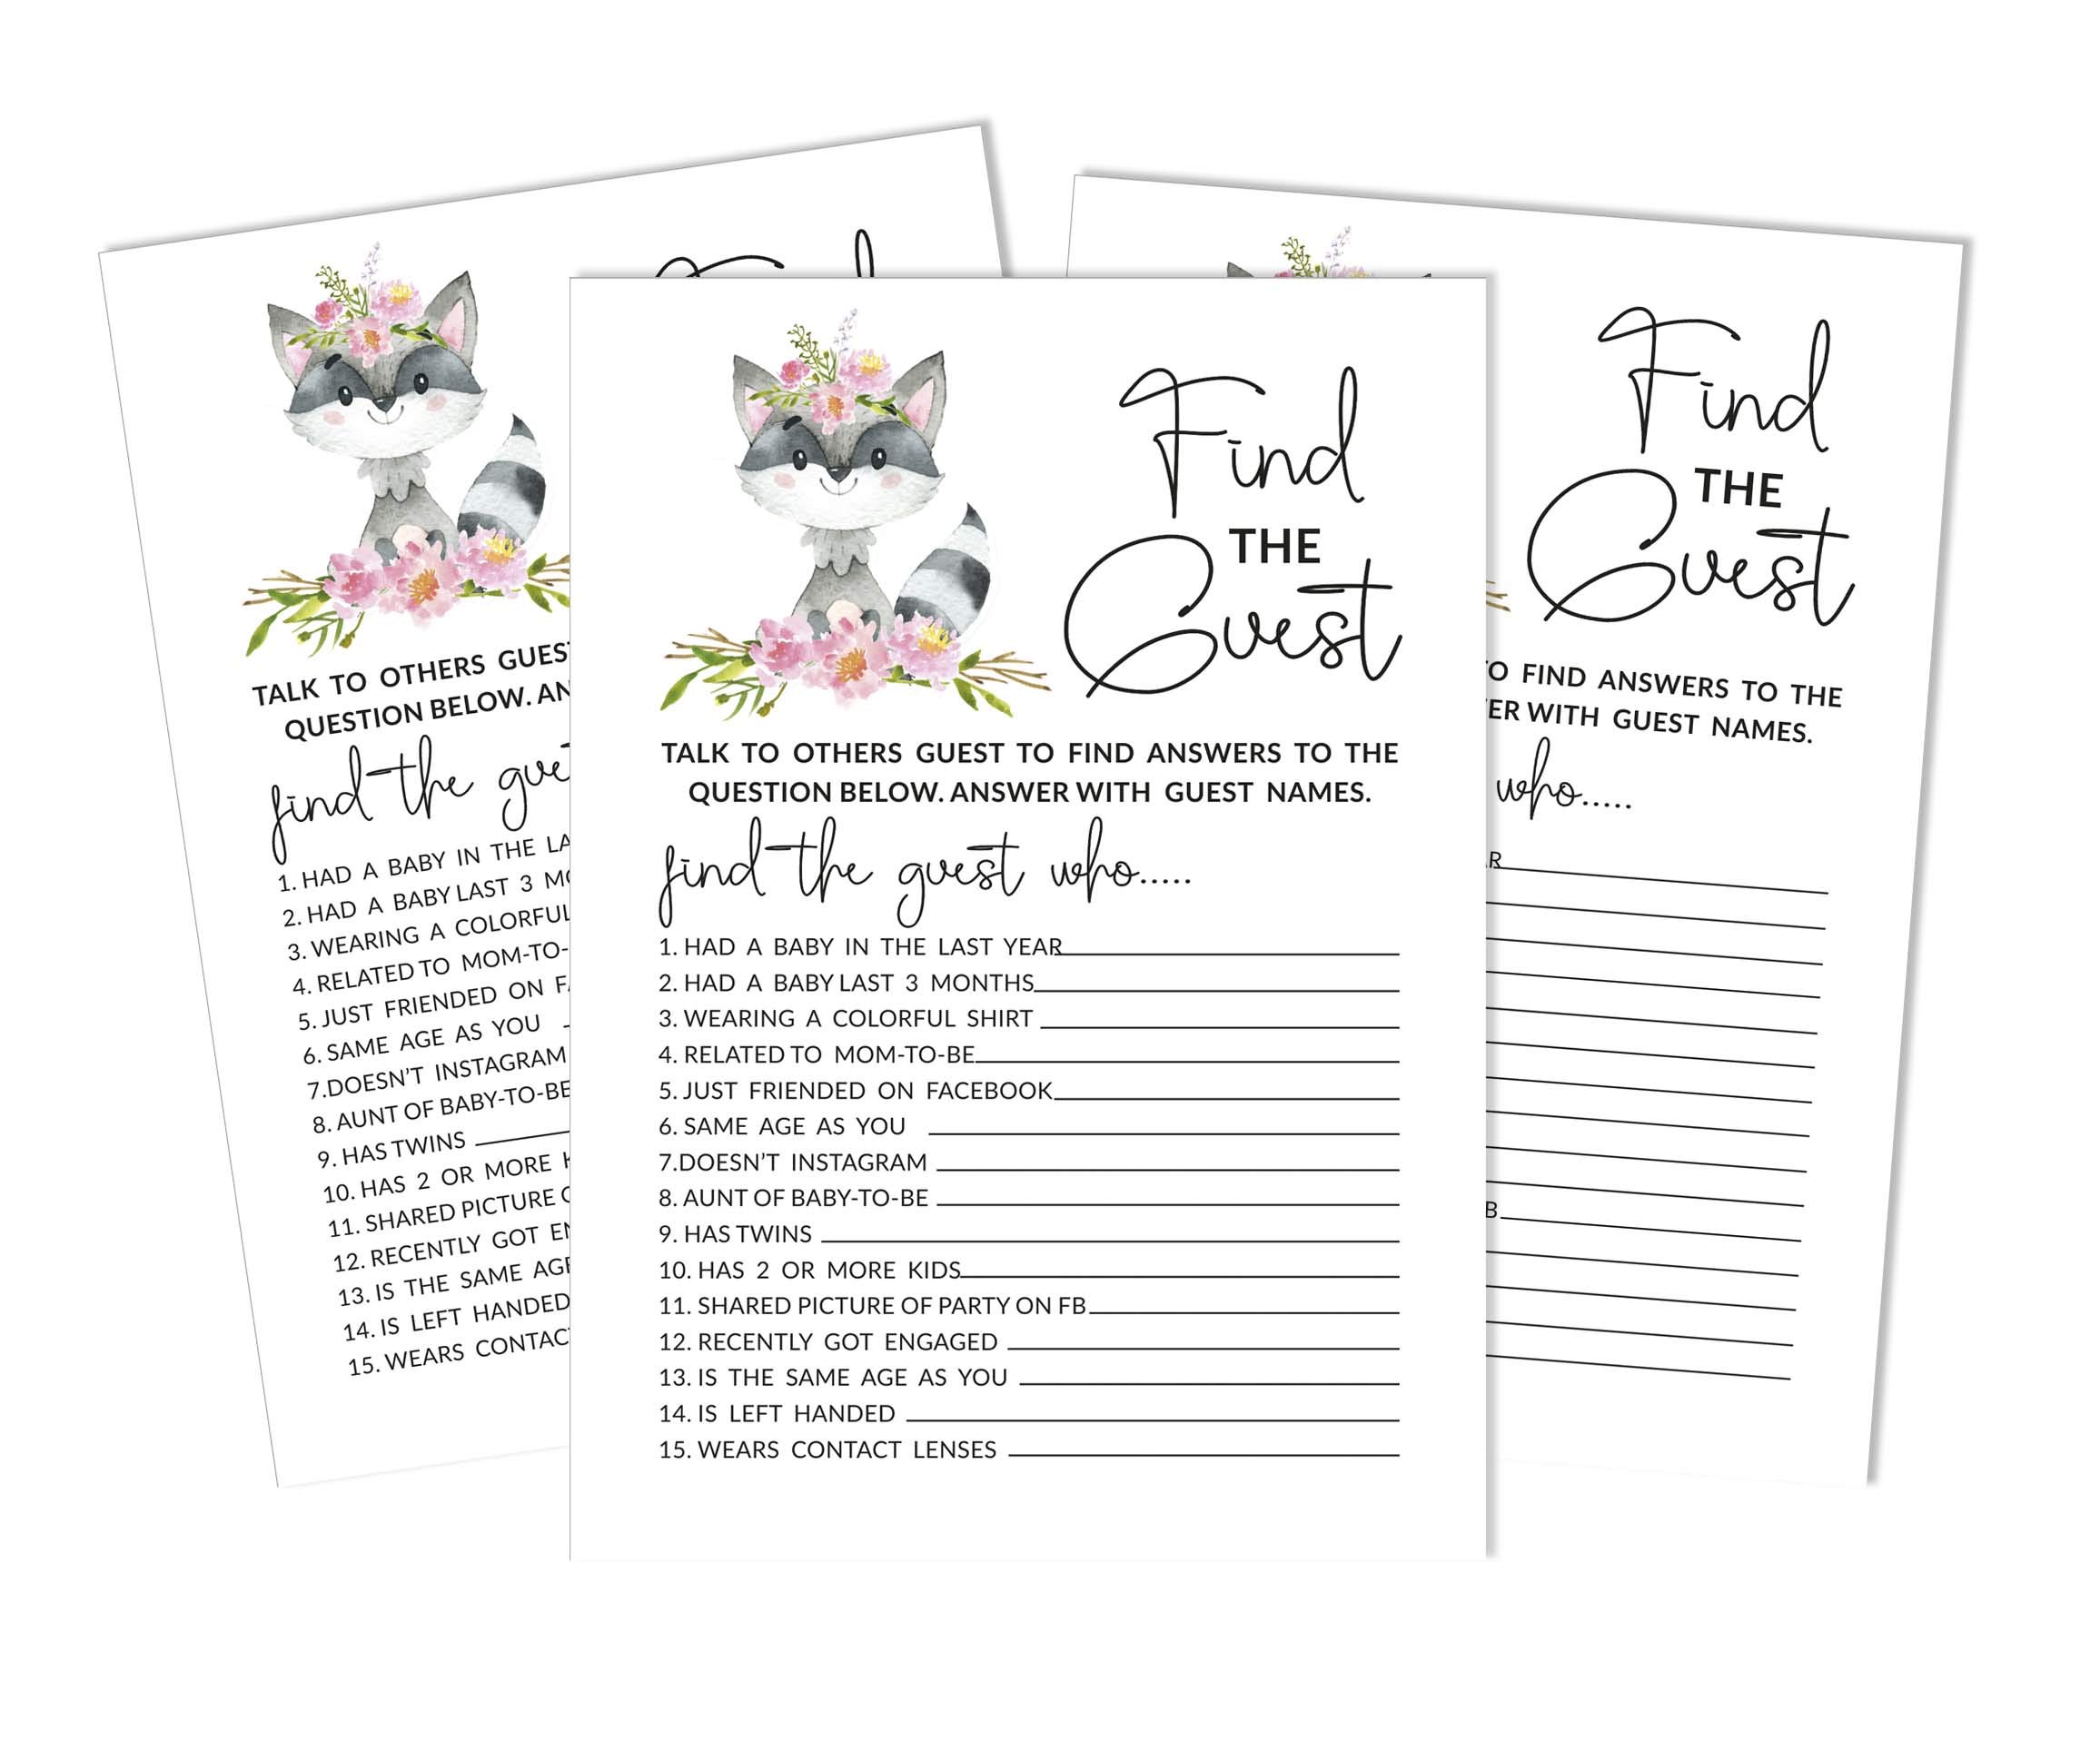 Find
THE
Guest
TALK TO OTHERS GUEST TO FIND ANSWERS TO THE
QUESTION BELOW. ANSWER WITH GUEST NAMES.
find the guest who.....
1. HAD A BABY IN THE LAST YEAR
2. HAD A BABY LAST 3 MONTHS
3. WEARING A COLORFUL SHIRT
4. RELATED TO MOM-TO-BE
5. JUST FRIENDED ON FACEBOOK
6. SAME AGE AS YOU
7.DOESN'T INSTAGRAM
8. AUNT OF BABY-TO-BE
9. HAS TWINS
10. HAS 2 OR MORE KIDS
11. SHARED PICTURE OF PARTY ON FB
12. RECENTLY GOT ENGAGED
13. IS THE SAME AGE AS YOU
14. IS LEFT HANDED
15. WEARS CONTACT LENSES
TALK TO OTHERS
QUESTION BELOW.
find the
1. HAD A BABY IN THE
2. HAD A BABY LAST 3
3. WEARING A COLORFUL
4. RELATED TO MOM-TO-
5. JUST FRIENDED ON
6. SAME AGE AS YOU
7.DOESN'T INSTAGRAM
8. AUNT OF BABY-TO-BE
9. HAS TWINS
10. HAS 2 OR MORE
11. SHARED PICTURE
12. RECENTLY GOT
13. IS THE SAME AGE
14. IS LEFT HANDED
15. WEARS
Find
THE
Guest
FIND ANSWERS TO THE
WITH GUEST NAMES.
who.....